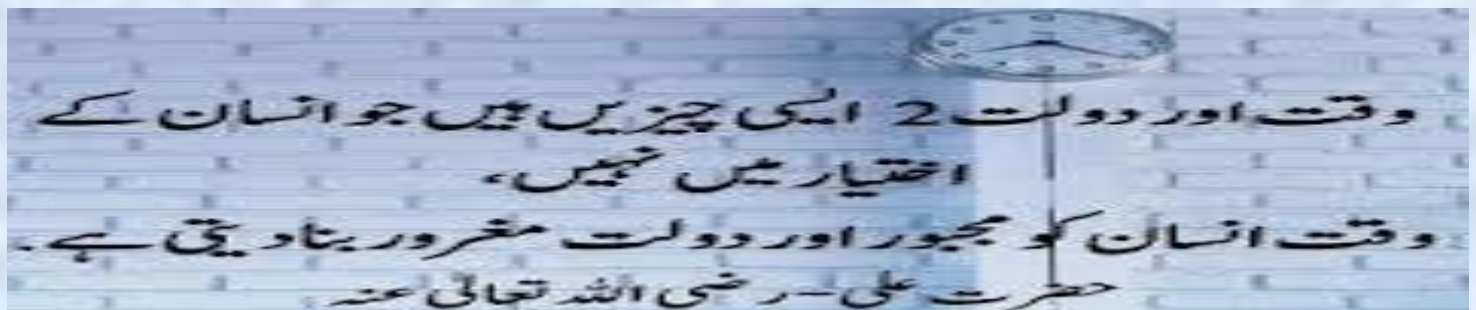 وقت اور دولت 2 ایسی چیزیں ہیں جو انسان کے
اختیار میں نہیں،
وقت انسان کو مجبور اور دولت مغرور بنا دیتی ہے۔
حضرت علی - رضی اللہ تعالیٰ عنہ